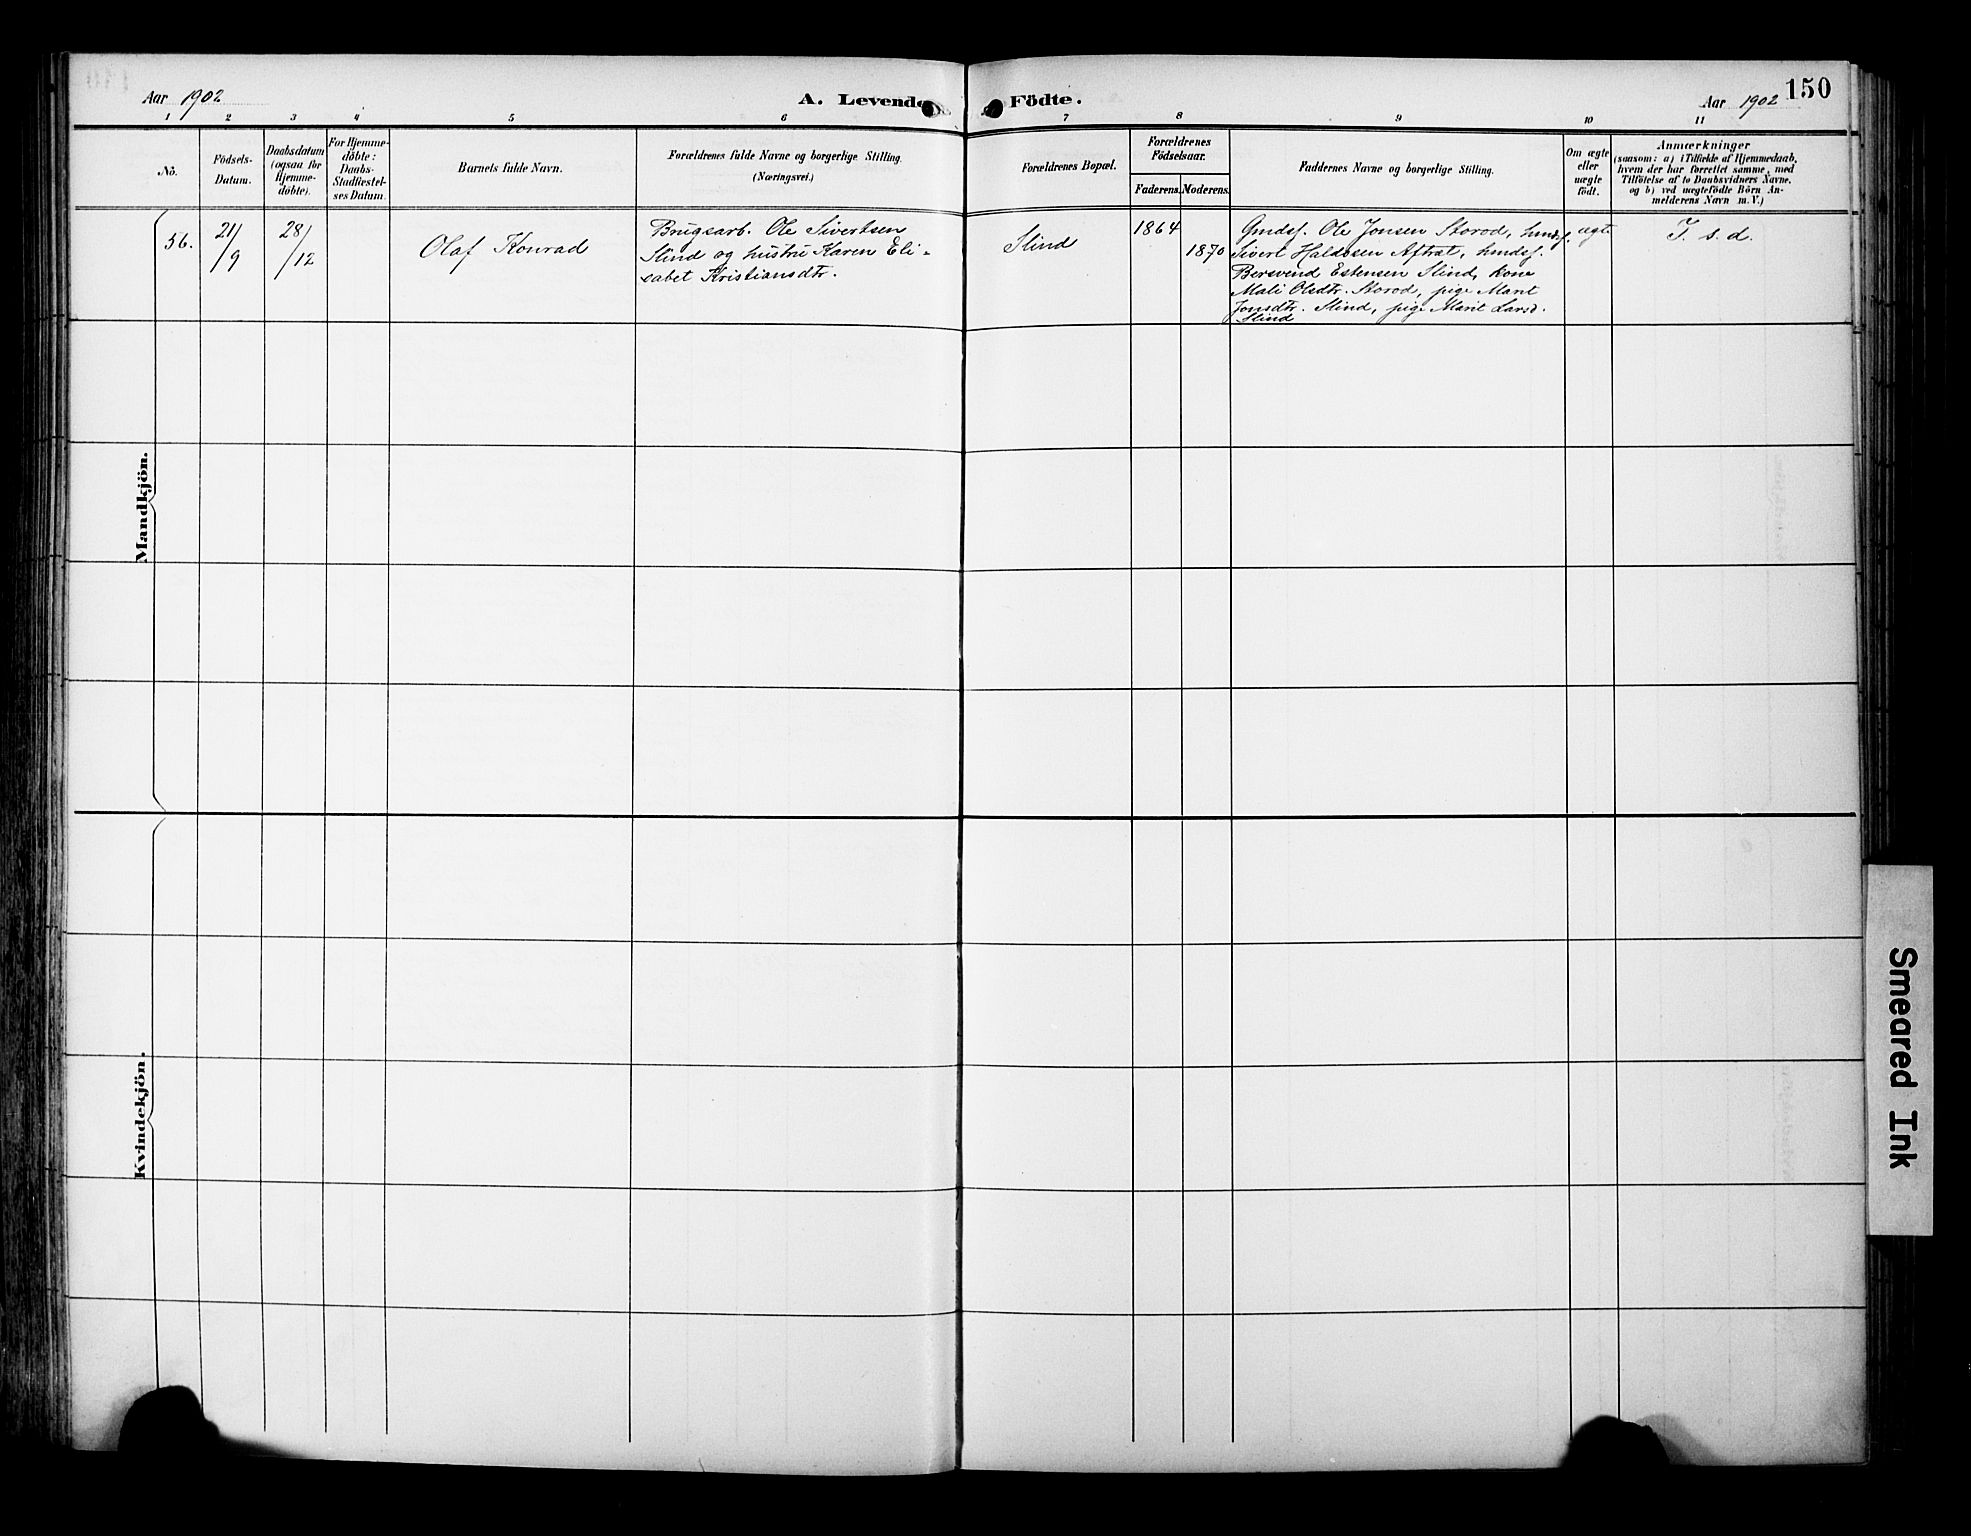 150
Aar 1902
A. Levende Födte.
Aar 1902
1 2 3 4 5 6 7 8 9 10 11
No.
Födsels-
Datum.
Daabsdatum
(ogsaa for
Hjemme-
döbte).
For Hjemme-
döbte:
Daabs-
Stadfæstel-
ses Datum.
Barnets fulde Navn.
Forældrenes fulde Navne og borgerlige Stilling.
(Næringsvei.)
Forældrenes Bopæl.
Forældrenes
Födselsaar.
Faderens. Moderens.
Faddernes Navne og borgerlige Stilling.
Om ægte
eller
uægte
födt.
Anmærkninger
(saasom: a) i Tilfælde af Hjemmedaab,
hvem der har forrettet samme, med
Tilföielse af to Daabsvidners Navne,
og b) ved uægtefödte Börn An-
melderens Navn m.V.)
Mandkjön.
56.
21/9
28/12
Olaf Konrad
Brugsarb. Ole Sivertsen
Slind og hustru Karen Eli-
sabet Kristiansdtr.
Slind
1864
1870
Gmdsf. Ole Jonsen Storod, hmdsf.
Sivert Haldosen Aftret, hmdsf.
Bersvend Estensen Slind, kone
Mali Olsdtr. Storod, pige Marit
Jonsdtr. Slind, pige Marit Larsd.
Slind
ægte
I. s. d.
Kvindekjön.
Smeared Ink